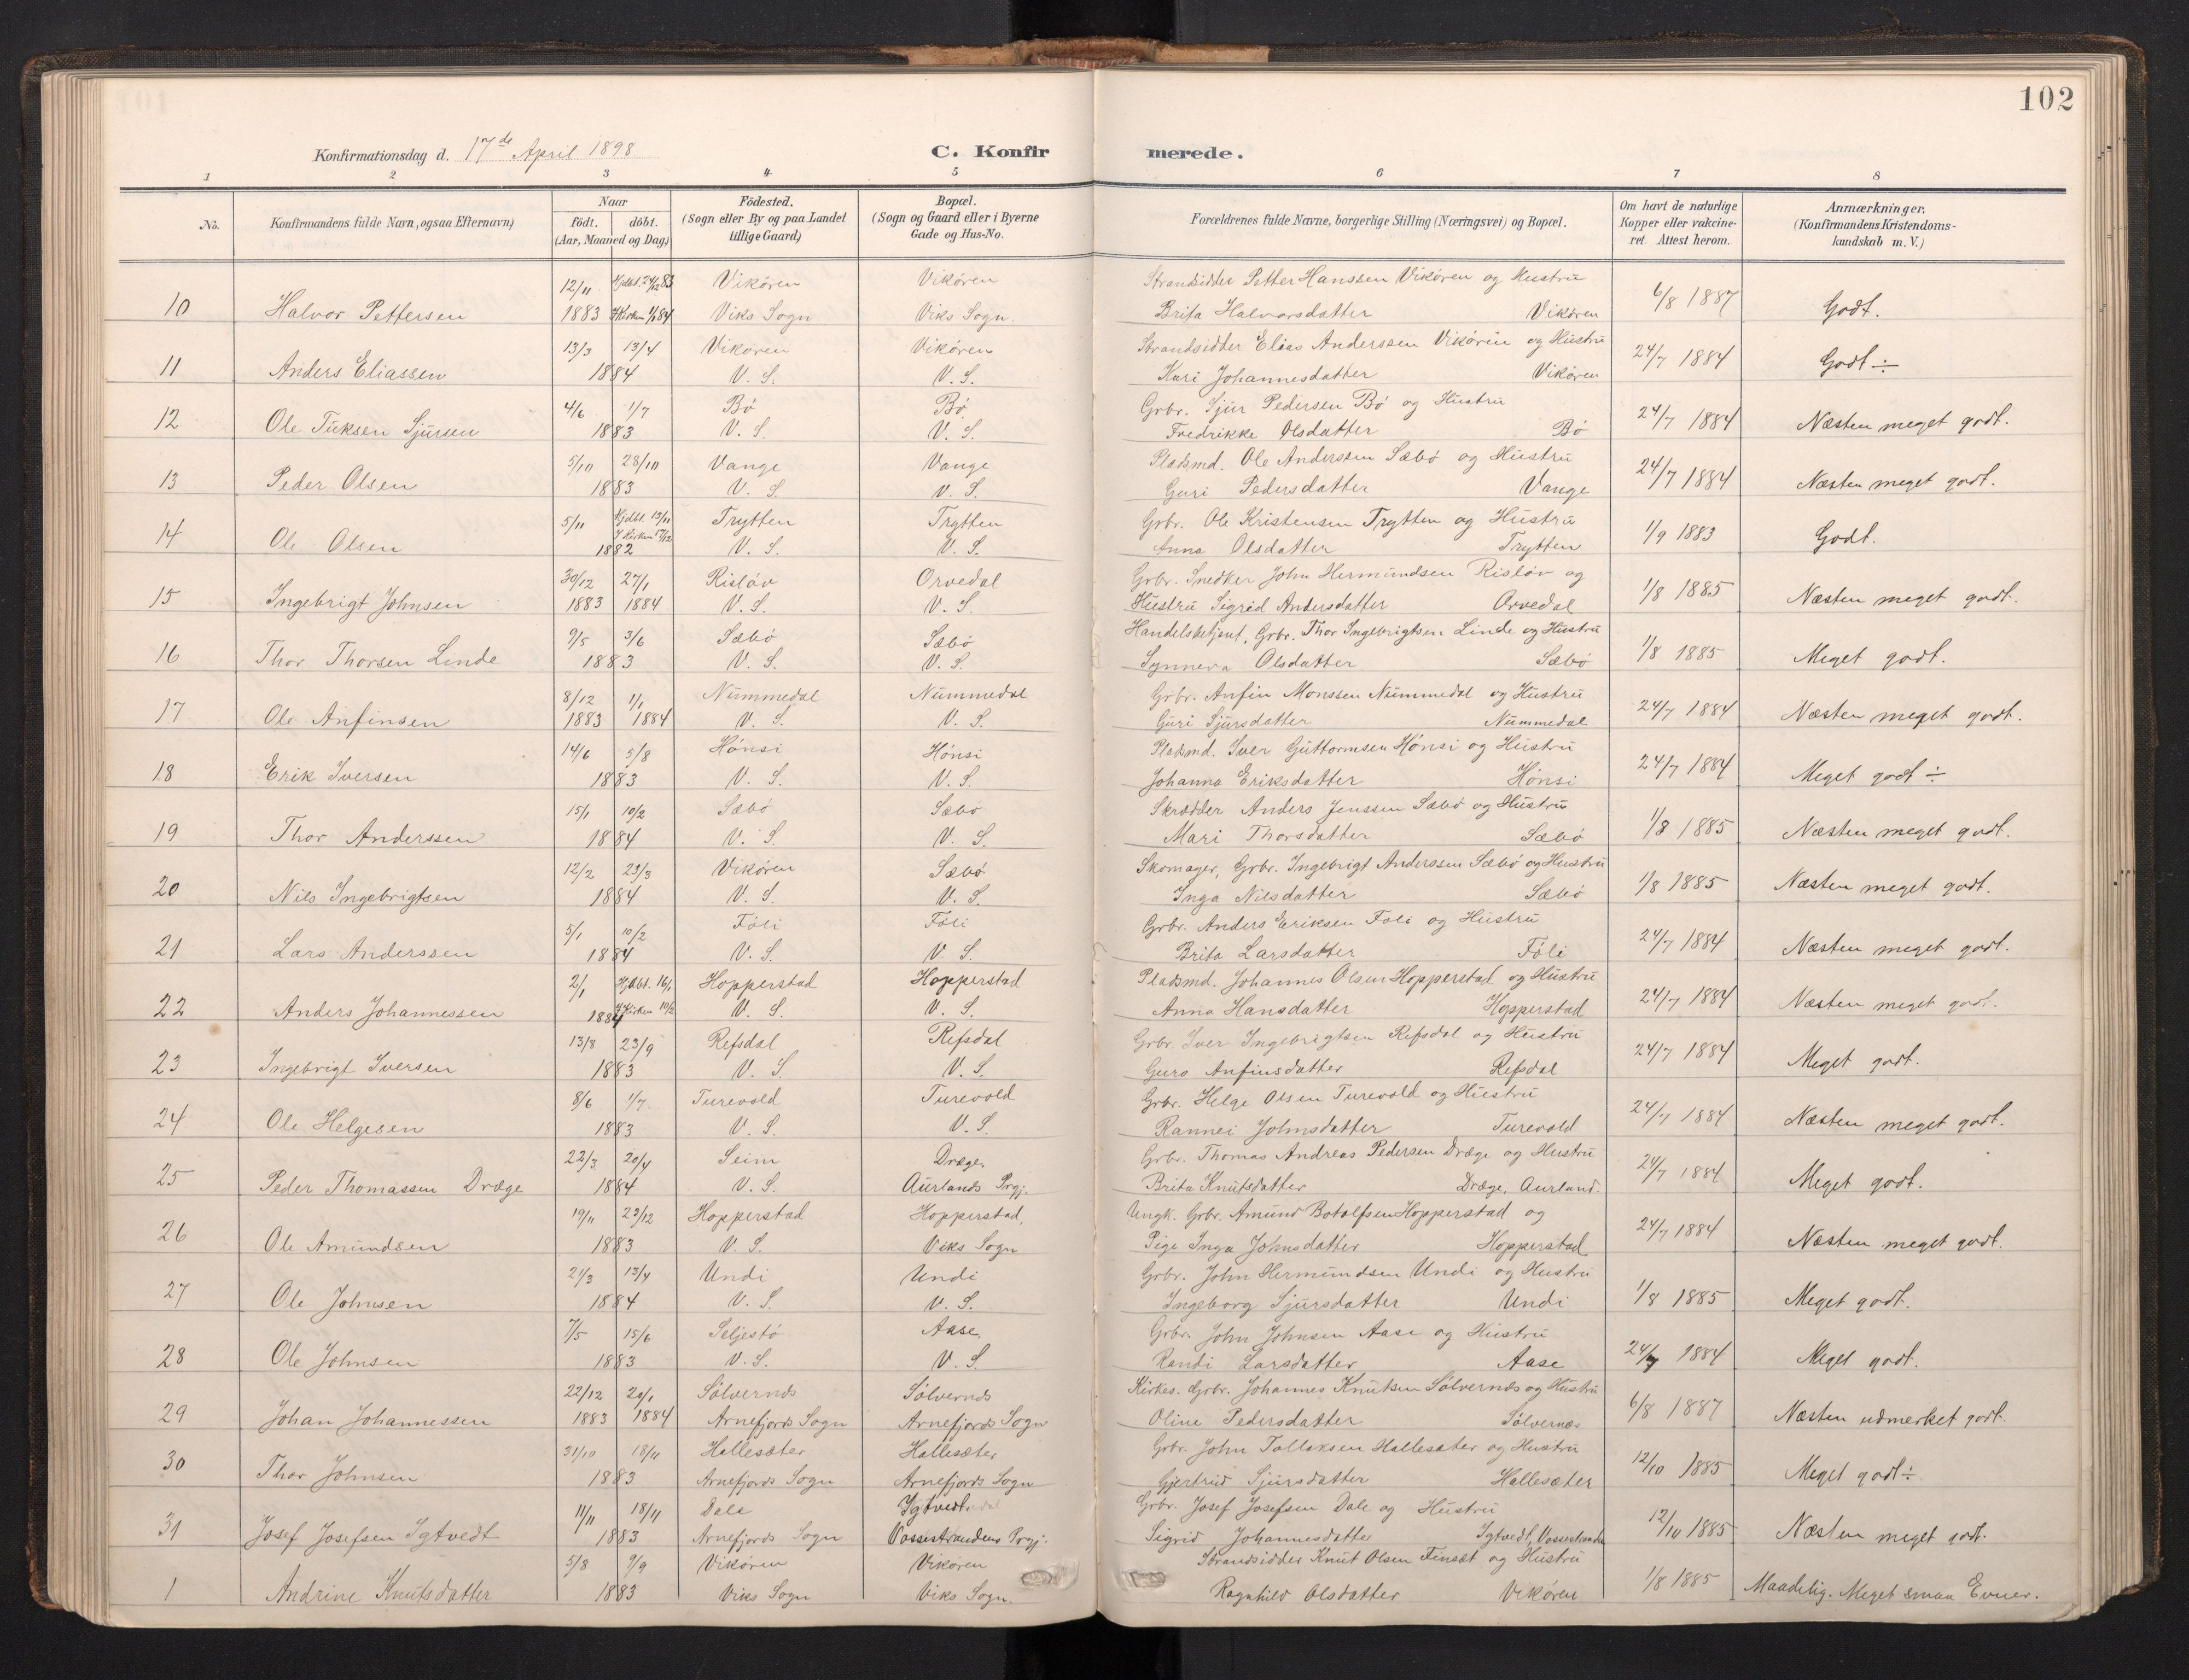 102
Konfirmationsdag d. 17de April 1898
C. Konfirmerede.
1 2 3 4 5 6 7 8
No. Konfirmandens fulde Navn, ogsaa Efternavn) Naar født. døbt. (Aar, Maaned og Dag) Fødested. (Sogn eller By og paa Landet tillige Gaard) Bopæl. (Sogn og Gaard eller i Byerne Gade og Hus-No. Forældrenes fulde Navne, borgerlige Stilling (Næringsvei) og Bopæl. Om havt de naturlige Kopper eller vaccineret. Attest herom. Anmærkninger. (Konfirmandens Kristendomskundskab m. V.)
12/11 Hjdbt. 24/12 83 Vikøren Vikøren Strandsidder Petter Hanssen Vikøren og Hustru
10 Halvor Pettersen 1883 I Kirken 1/1 84 Viks Sogn Viks Sogn. Brita Halvorsdatter Vikøren 6/8 1887 Godt.
13/3 13/4 Vikøren Vikøren Strandsidder Elias Anderssen Vikøren og Hustru
11 Anders Eliassen 1884 V. S. V. S. Kari Johannesdatter Vikøren 24/7 1884 Godt ÷
4/6 1/7 Bø Bø Grbr. Sjur Pedersen Bø og Hustru
12 Ole Tuksen Sjursen 1883 V. S. V. S. Fredrikke Olsdatter Bø 24/7 1884 Næsten meget godt.
5/10 28/10 Vange Vange Pladsmd. Ole Anderssen Sæbø og Hustru
13 Peder Olsen 1883 V. S. V. S. Guri Pedersdatter Vange 24/7 1884 Næsten meget godt.
5/11 Hjdbt. 13/11 I Kirken 17/12 Trytten Trytten Grbr. Ole Kristensen Trytten og Hustru
14 Ole Olsen 1882 V. S. V. S. Anna Olsdatter Trytten 1/9 1883 Godt.
30/12 27/1 Risløv Orvedal Grbr. Snedker John Hermundsen Risløv og
15 Ingebrigt Johnsen 1883 1884 V. S. V. S. Hustru Sigrid Andersdatter Orvedal 1/8 1885 Næsten meget godt.
9/5 3/6 Sæbø Sæbø Handelsbetjent, Grbr. Thor Ingebrigtsen Linde og Hustru
16 Thor Thorsen Linde 1883 V. S. V. S. Synneva Olsdatter Sæbø 1/8 1885 Meget godt.
8/12 1/1 Nummedal Nummedal Grbr. Anfin Monssen Nummedal og Hustru
17 Ole Anfinsen 1883 1884 V. S. V. S. Guri Sjursdatter Nummedal 24/7 1884 Næsten meget godt.
14/6 5/8 Hønsi Hønsi Pladsmd. Iver Guttormsen Hønsi og Hustru
18 Erik Iversen 1883 V. S. V. S. Johanna Eriksdatter Hønsi 24/7 1884 Meget godt ÷
15/1 10/2 Sæbø Sæbø Skrædder Anders Jenssen Sæbø og Hustru
19 Thor Anderssen 1884 V. S. V. S. Mari Thorsdatter Sæbø 1/8 1885 Næsten meget godt.
12/2 23/3 Vikøren Sæbø Skomager, Grbr. Ingebrigt Anderssen Sæbø og Hustru
20 Nils Ingebrigtsen 1884 V. S. V. S. Inga Nilsdatter Sæbø 1/8 1885 Næsten meget godt.
5/1 10/2 Føli Føli Grbr. Anders Eriksen Føli og Hustru
21 Lars Anderssen 1884 V. S. V. S. Brita Larsdatter Føli 24/7 1884 Næsten meget godt.
2/1 Hjdbt. 16/1 Hopperstad Hopperstad Pladsmd. Johannes Olsen Hopperstad og Hustru
22 Anders Johannessen 1884 I Kirken 10/2 V. S. V. S. Anna Hansdatter Hopperstad 24/7 1884 Næsten meget godt.
13/8 23/9 Refsdal Refsdal Grbr. Iver Ingebrigtsen Refsdal og Hustru
23 Ingebrigt Iversen 1883 V. S. V. S. Guro Anfinsdatter Refsdal 24/7 1884 Meget godt.
8/6 1/7 Turevold Turevold Grbr. Helge Olsen Turevold og Hustru
24 Ole Helgesen 1883 V. S. V. S. Rannei Johnsdatter Turevold 24/7 1884 Næsten meget godt.
22/3 20/4 Seim Dræge, Grbr. Thomas Andreas Pedersen Dræge og Hustru
25 Peder Thomassen Dræge 1884 V. S. Aurlands Prgj. Brita Knutsdatter Dræge, Aurland. 24/7 1884 Meget godt.
19/11 23/12 Hopperstad Hopperstad, Ungk. Grbr. Amund Botolfsen Hopperstad og
26 Ole Amundsen 1883 V. S. Viks Sogn Pige Inga Johnsdatter Hopperstad 24/7 1884 Næsten meget godt.
21/3 13/4 Undi Undi Grbr. John Hermundsen Undi og Hustru
27 Ole Johnsen 1884 V. S. V. S. Ingeborg Sjursdatter Undi 1/8 1885 Meget godt.
7/5 15/6 Seljestø Aase, Grbr. John Johnsen Aase og Hustru
28 Ole Johnsen 1883 V. S. V. S. Randi Larsdatter Aase 24/7 1884 Meget godt.
22/12 20/1 Sølvernæs Sølvernæs Kirkes. Grbr. Johannes Knutsen Sølvernæs og Hustru
29 Johan Johannessen 1883 1884 Arnefjords Sogn Arnefjords Sogn Oline Pedersdatter Sølvernæs 6/8 1887 Næsten udmerket godt.
31/10 18/11 Hallesæter Hallesæter Grbr. John Tollaksen Hallesæter og Hustru
30 Thor Johnsen 1883 Arnefjords Sogn Arnefjords Sogn Gjertrud Sjursdatter Hallesæter 12/10 1885 Meget godt ÷
11/11 18/11 Dale Ygtvedt Grbr. Josef Josefsen Dale og Hustru
31 Josef Josefsen Ygtvedt 1883 Arnefjords Sogn Vossestrandens Prgj. Sigrid Johannesdatter Ygtvedt, Vossestranden 12/10 1885 Næsten meget godt.
5/8 9/9 Vikøren Vikøren Strandsidder Knut Olsen Finsæt og Hustru
1 Andrine Knutsdatter 1883 Viks Sogn Viks Sogn. Ragnhild Olsdatter Vikøren 1/8 1885 Maadelig. Meget smaa Evner.